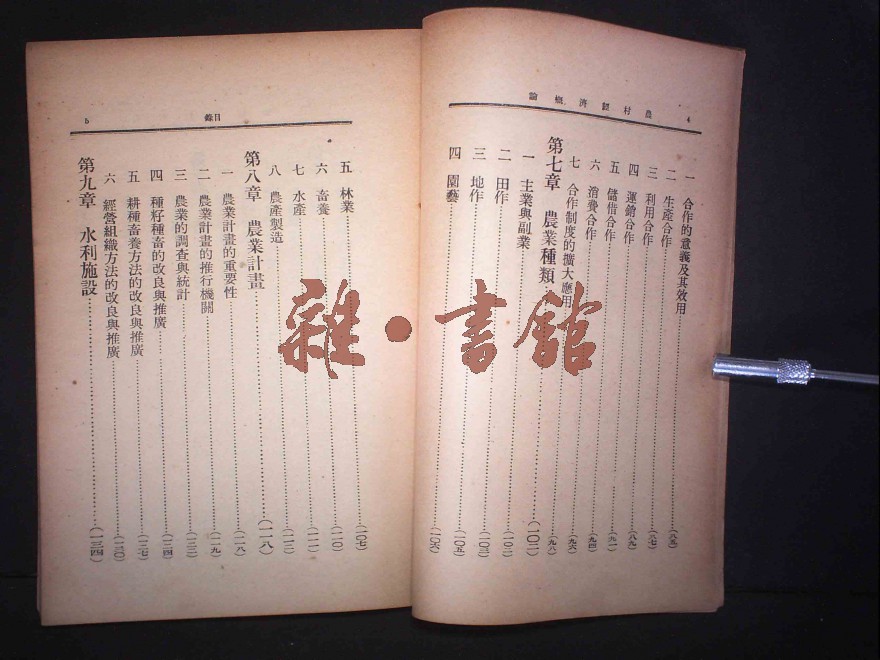 農村經濟概論 4
一 合作的意義及其效用 (八五)
二 生產合作 (八七)
三 利用合作
四 運銷合作 (八九)
五 儲借合作 (九一)
六 消費合作 (九四)
七 合作制度的擴大應用 (九八)
第七章 農業種類 (一〇二)
一 主業與副業
二 田作 (一〇二)
三 地作 (一〇三)
四 園藝 (一〇五)
目錄 5
五 林業 (一〇七)
六 畜養 (一一〇)
七 水產 (一一一)
八 農產製造 (一一二)
第八章 農業計畫 (一一八)
一 農業計畫的重要性 (一一八)
二 農業計畫的推行機關 (一一九)
三 農業的調查與統計
四 種籽種畜的改良與推廣 (一二四)
五 耕種畜養方法的改良與推廣 (一二七)
六 經營組織方法的改良與推廣 (一三〇)
第九章 水利施設 (一三四)
雜·書館